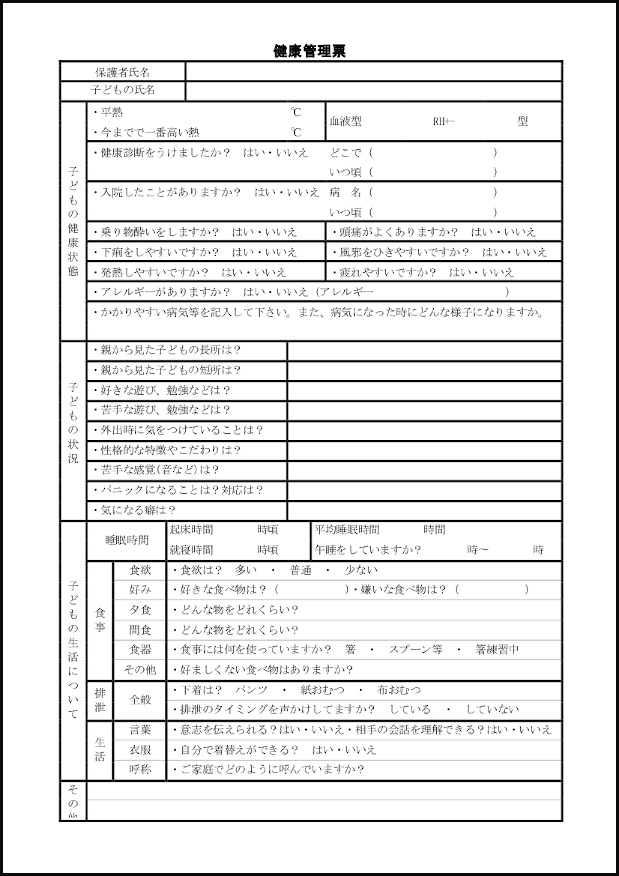 健康管理票
保護者氏名
子どもの氏名
子どもの健康状態
・平熱 ℃
・今までで一番高い熱 ℃
血液型 RH+- 型
・健康診断をうけましたか？ はい・いいえ どこで（ ）
いつ頃（ ）
・入院したことがありますか？ はい・いいえ 病 名（ ）
いつ頃（ ）
・乗り物酔いをしますか？ はい・いいえ ・頭痛がよくありますか？ はい・いいえ
・下痢をしやすいですか？ はい・いいえ ・風邪をひきやすいですか？ はい・いいえ
・発熱しやすいですか？ はい・いいえ ・疲れやすいですか？ はい・いいえ
・アレルギーがありますか？ はい・いいえ（アレルギー ）
・かかりやすい病気等を記入して下さい。また、病気になった時にどんな様子になりますか。
子どもの状況
・親から見た子どもの長所は？
・親から見た子どもの短所は？
・好きな遊び、勉強などは？
・苦手な遊び、勉強などは？
・外出時に気をつけていることは？
・性格的な特徴やこだわりは？
・苦手な感覚(音など)は？
・パニックになることは？対応は？
・気になる癖は？
子どもの生活について
睡眠時間
起床時間 時頃 平均睡眠時間 時間
就寝時間 時頃 午睡をしていますか？ 時～ 時
食事
食欲 ・食欲は？ 多い ・ 普通 ・ 少ない
好み ・好きな食べ物は？（ ）・嫌いな食べ物は？（ ）
夕食 ・どんな物をどれくらい？
間食 ・どんな物をどれくらい？
食器 ・食事には何を使っていますか？ 箸 ・ スプーン等 ・ 箸練習中
その他 ・好ましくない食べ物はありますか？
排泄
全般
・下着は？ パンツ ・ 紙おむつ ・ 布おむつ
・排泄のタイミングを声かけしてますか？ している ・ していない
生活
言葉 ・意志を伝えられる？はい・いいえ・相手の会話を理解できる？はい・いいえ
衣服 ・自分で着替えができる？ はい・いいえ
呼称 ・ご家庭でどのように呼んでいますか？
その他